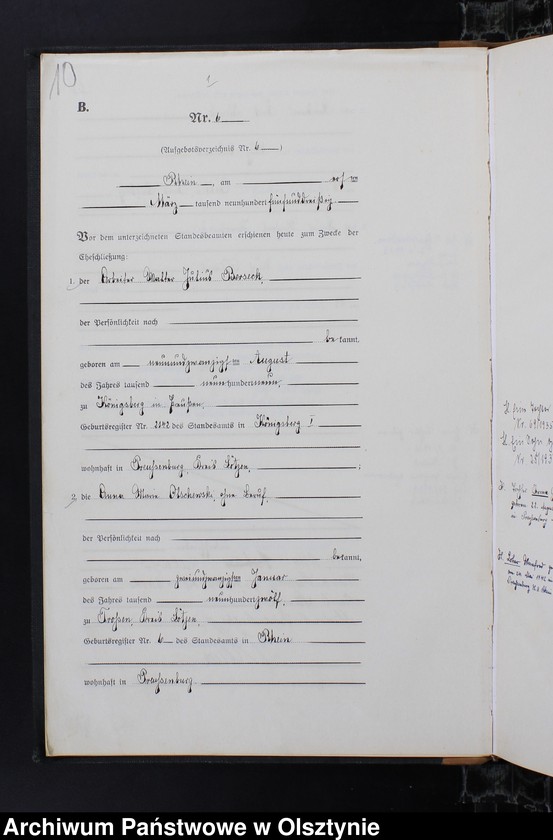 10
1
B.
Nr. 6
(Aufgebotsverzeichnis Nr. 6)
Rhein, am
März tausend neunhundert fünfunddreißig
Vor dem unterzeichneten Standesbeamten erschienen heute zum Zwecke der
Eheschließung:
1. der Arbeiter Walter Julius Berseck,
der Persönlichkeit nach
be kannt,
geboren am neunundzwanzigsten August
des Jahres tausend neunhundertneun,
zu Königsberg in Preußen,
Geburtsregister Nr. 2842 des Standesamts in Königsberg I
wohnhaft in Preußenburg, Kreis Lötzen, ;
2. die Anna Marie Olschewski, ohne Beruf,
der Persönlichkeit nach
bekannt,
geboren am Januar
des Jahres tausend neunhundertzwölf,
zu Trossen, Kreis Lötzen,
Geburtsregister Nr. 6 des Standesamts in Rhein
wohnhaft in Preußenburg
Archiwum Państwowe w Olsztynie